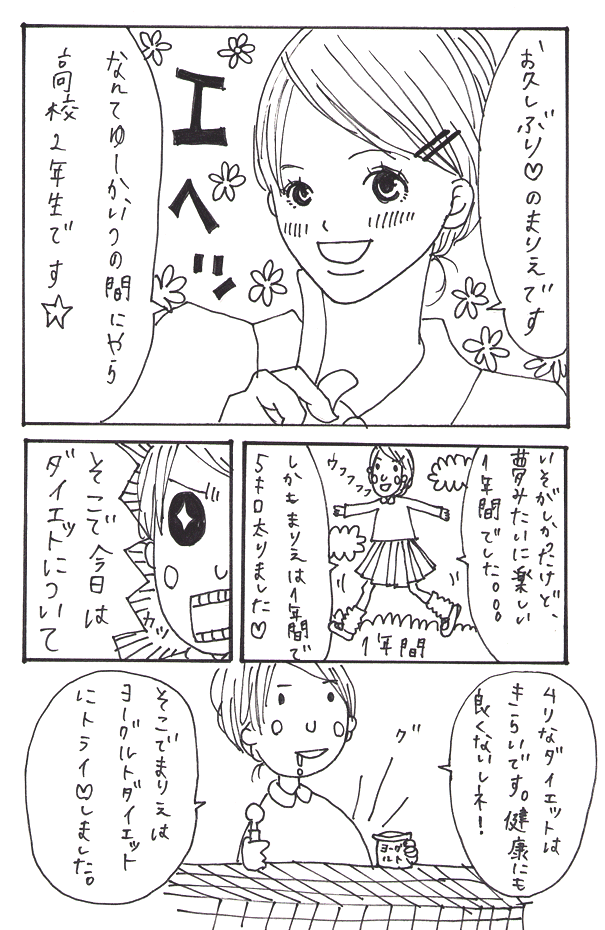 お久しぶり♡のまりえです
エヘッ
なんてゆーか、いつの間にやら
高校2年生です☆
いそがしかったけど、
夢みたいに楽しい
1年間でした。。。
ウフフフ
しかもまりえは1年間で
5キロ太りました♡
1年間
そこで今日は
ダイエットについて
カッ
ムリなダイエットは
きらいです。健康にも
良くないしネ!
グ
ヨーグ
ルト
そこでまりえは
ヨーグルトダイエット
にトライ♡しました。